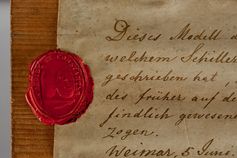 Dieses Modell d
welchem Schiller
geschrieben hat
des früher auf de
findlich gewesene
zogen.
Weimar, 5 Juni.